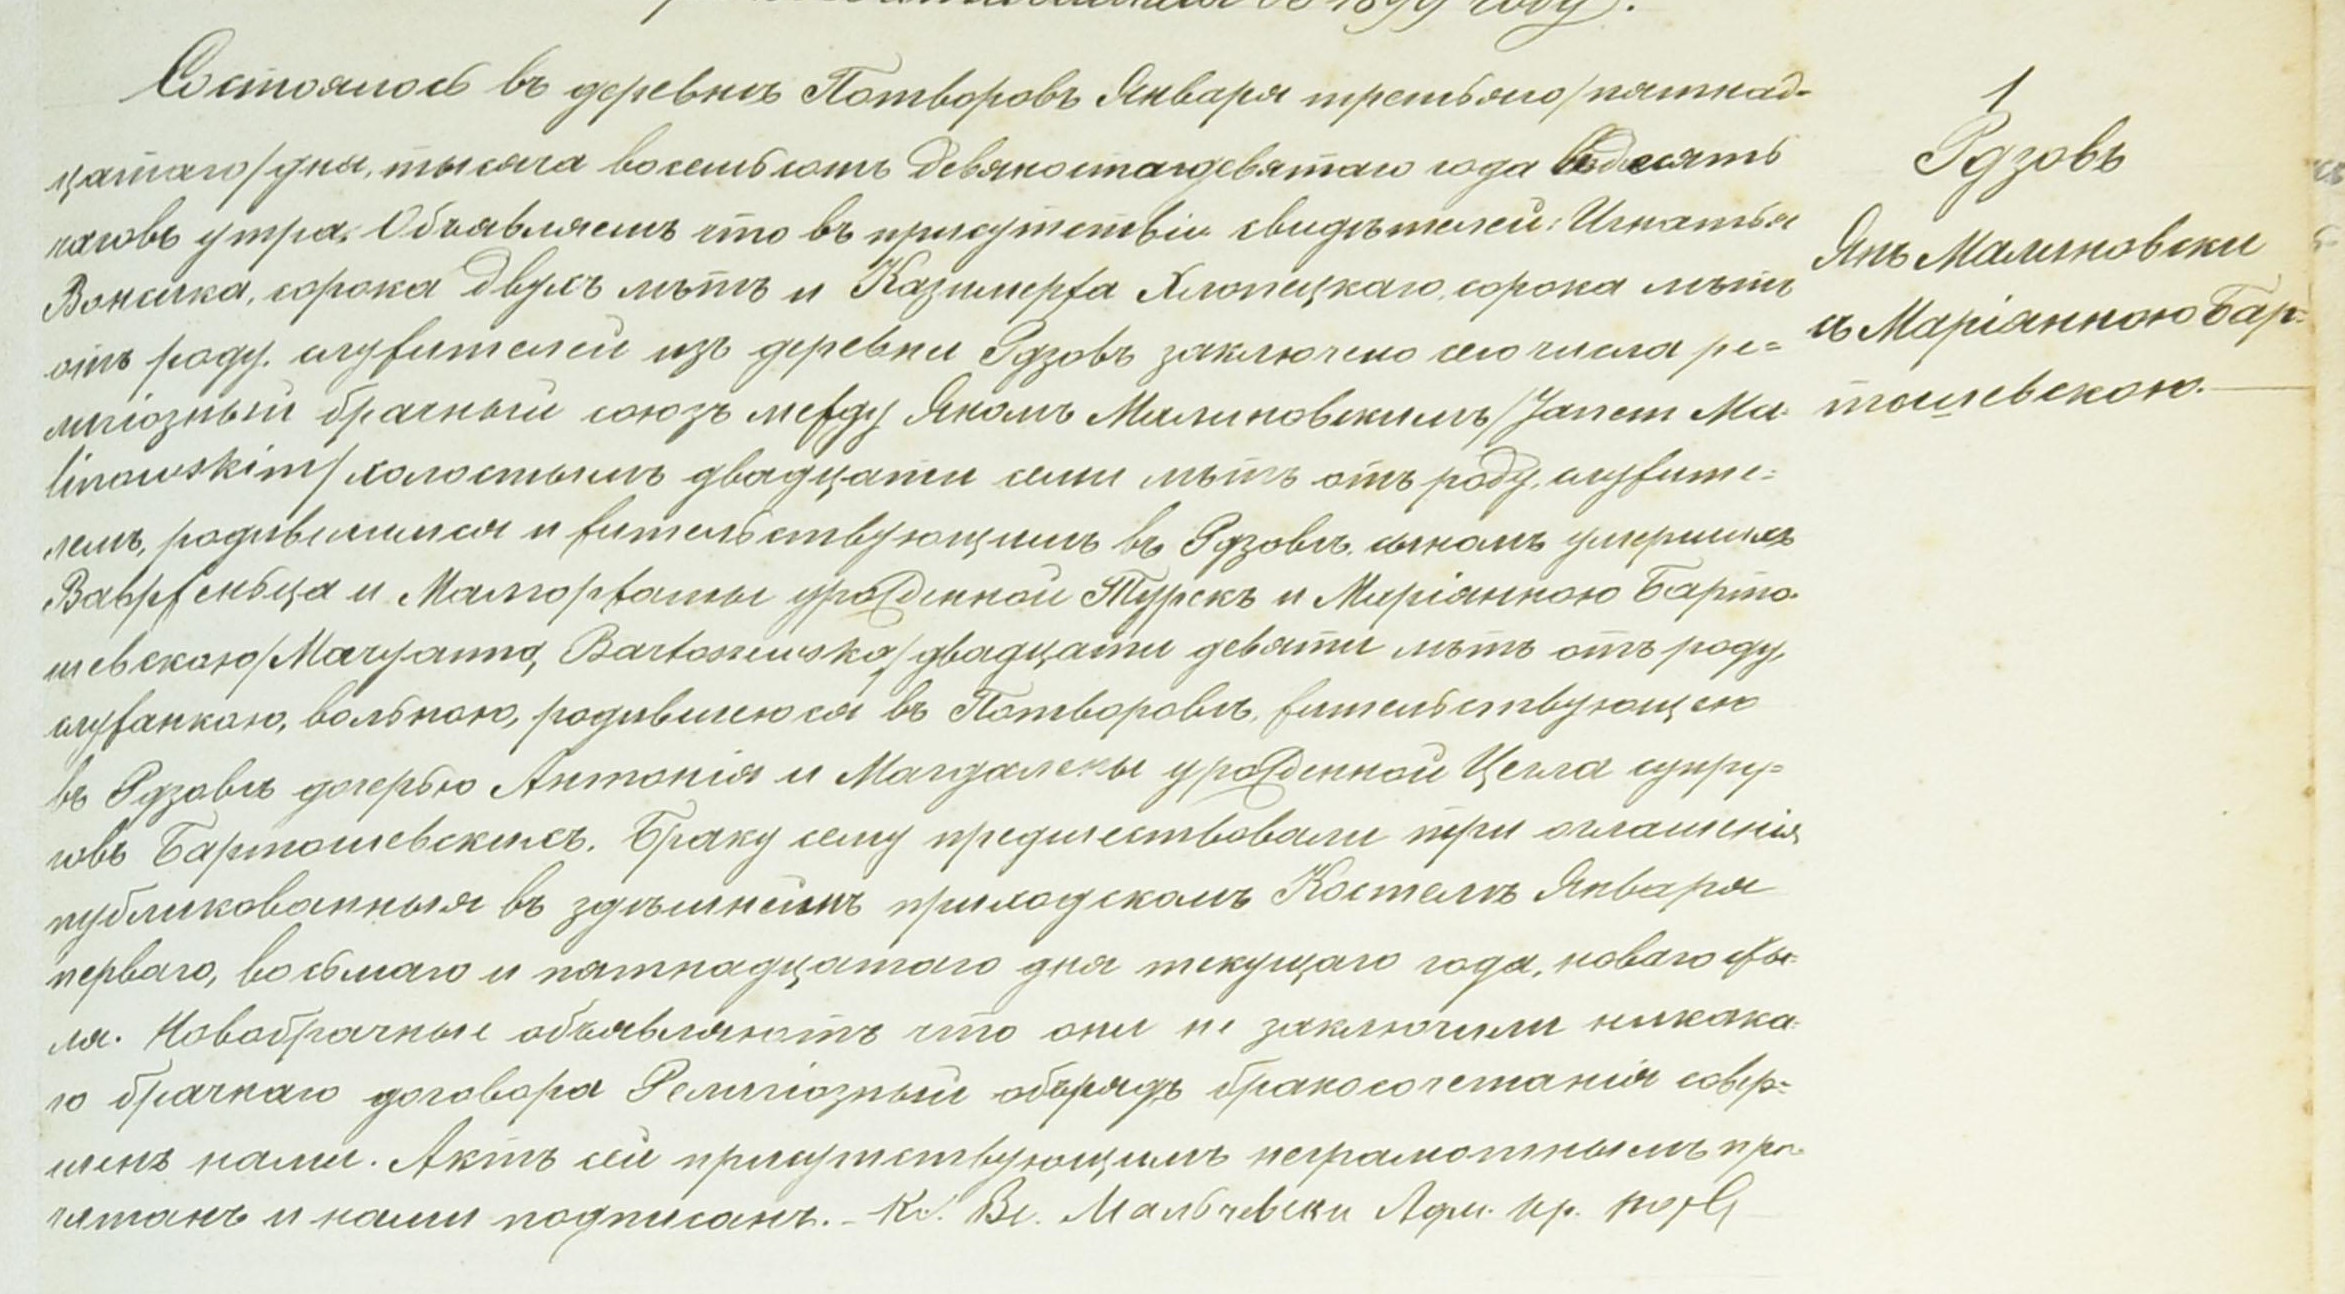 въ 1899 году.
Состоялось въ деревнѣ Потворовъ Января третьяго/пятнад-
цатаго/дня, тысяча восемьсотъ девяностагодевятаго года въ десять
часовъ утра. Объявляемъ что въ присутствіи свидѣтелей: Игнатья
Вонсика, сорока двухъ лѣтъ и Казимержа Хлопецкаго, сорока лѣтъ
отъ роду, служителей изъ деревни Рдзовъ заключено сего числа ре=
лигіозный брачный союзъ между Яномъ Малиновскимъ/Janem Ma-
linowskim/холостымъ двадцати семи лѣтъ отъ роду, служите=
лемъ, родившимся и жительствующимъ въ Рдзовѣ, сыномъ умершихъ
Ваврженьца и Малгоржаты урожденной Турекъ и Маріанною Барто-
шевскою/Maryanną Bartoszewską/двадцати девяти лѣтъ отъ роду,
служанкою, вольною, родившеюся въ Потворовѣ, жительствующею
въ Рдзовѣ дочерью Антонія и Магдалены урожденной Цегла супру=
говъ Бартошевскихъ. Браку сему предшествовали три оглашенія
публикованныя въ здѣшнемъ приходскомъ Костелѣ Января
перваго, восьмаго и пятнадцатаго дня текущаго года, новаго сты-
ля. Новобрачные объявляютъ что они не заключили никака-
го брачнаго договора Религіозный обрядъ бракосочетанія совер=
шенъ нами. Актъ сей присутствующимъ неграмотнымъ про-
читанъ и нами подписанъ. - Кс. Вл. Мальчевски Адм. пр.
1
Рдзовъ
Янъ Малиновски
съ Маріанною Бар=
тошевскою.